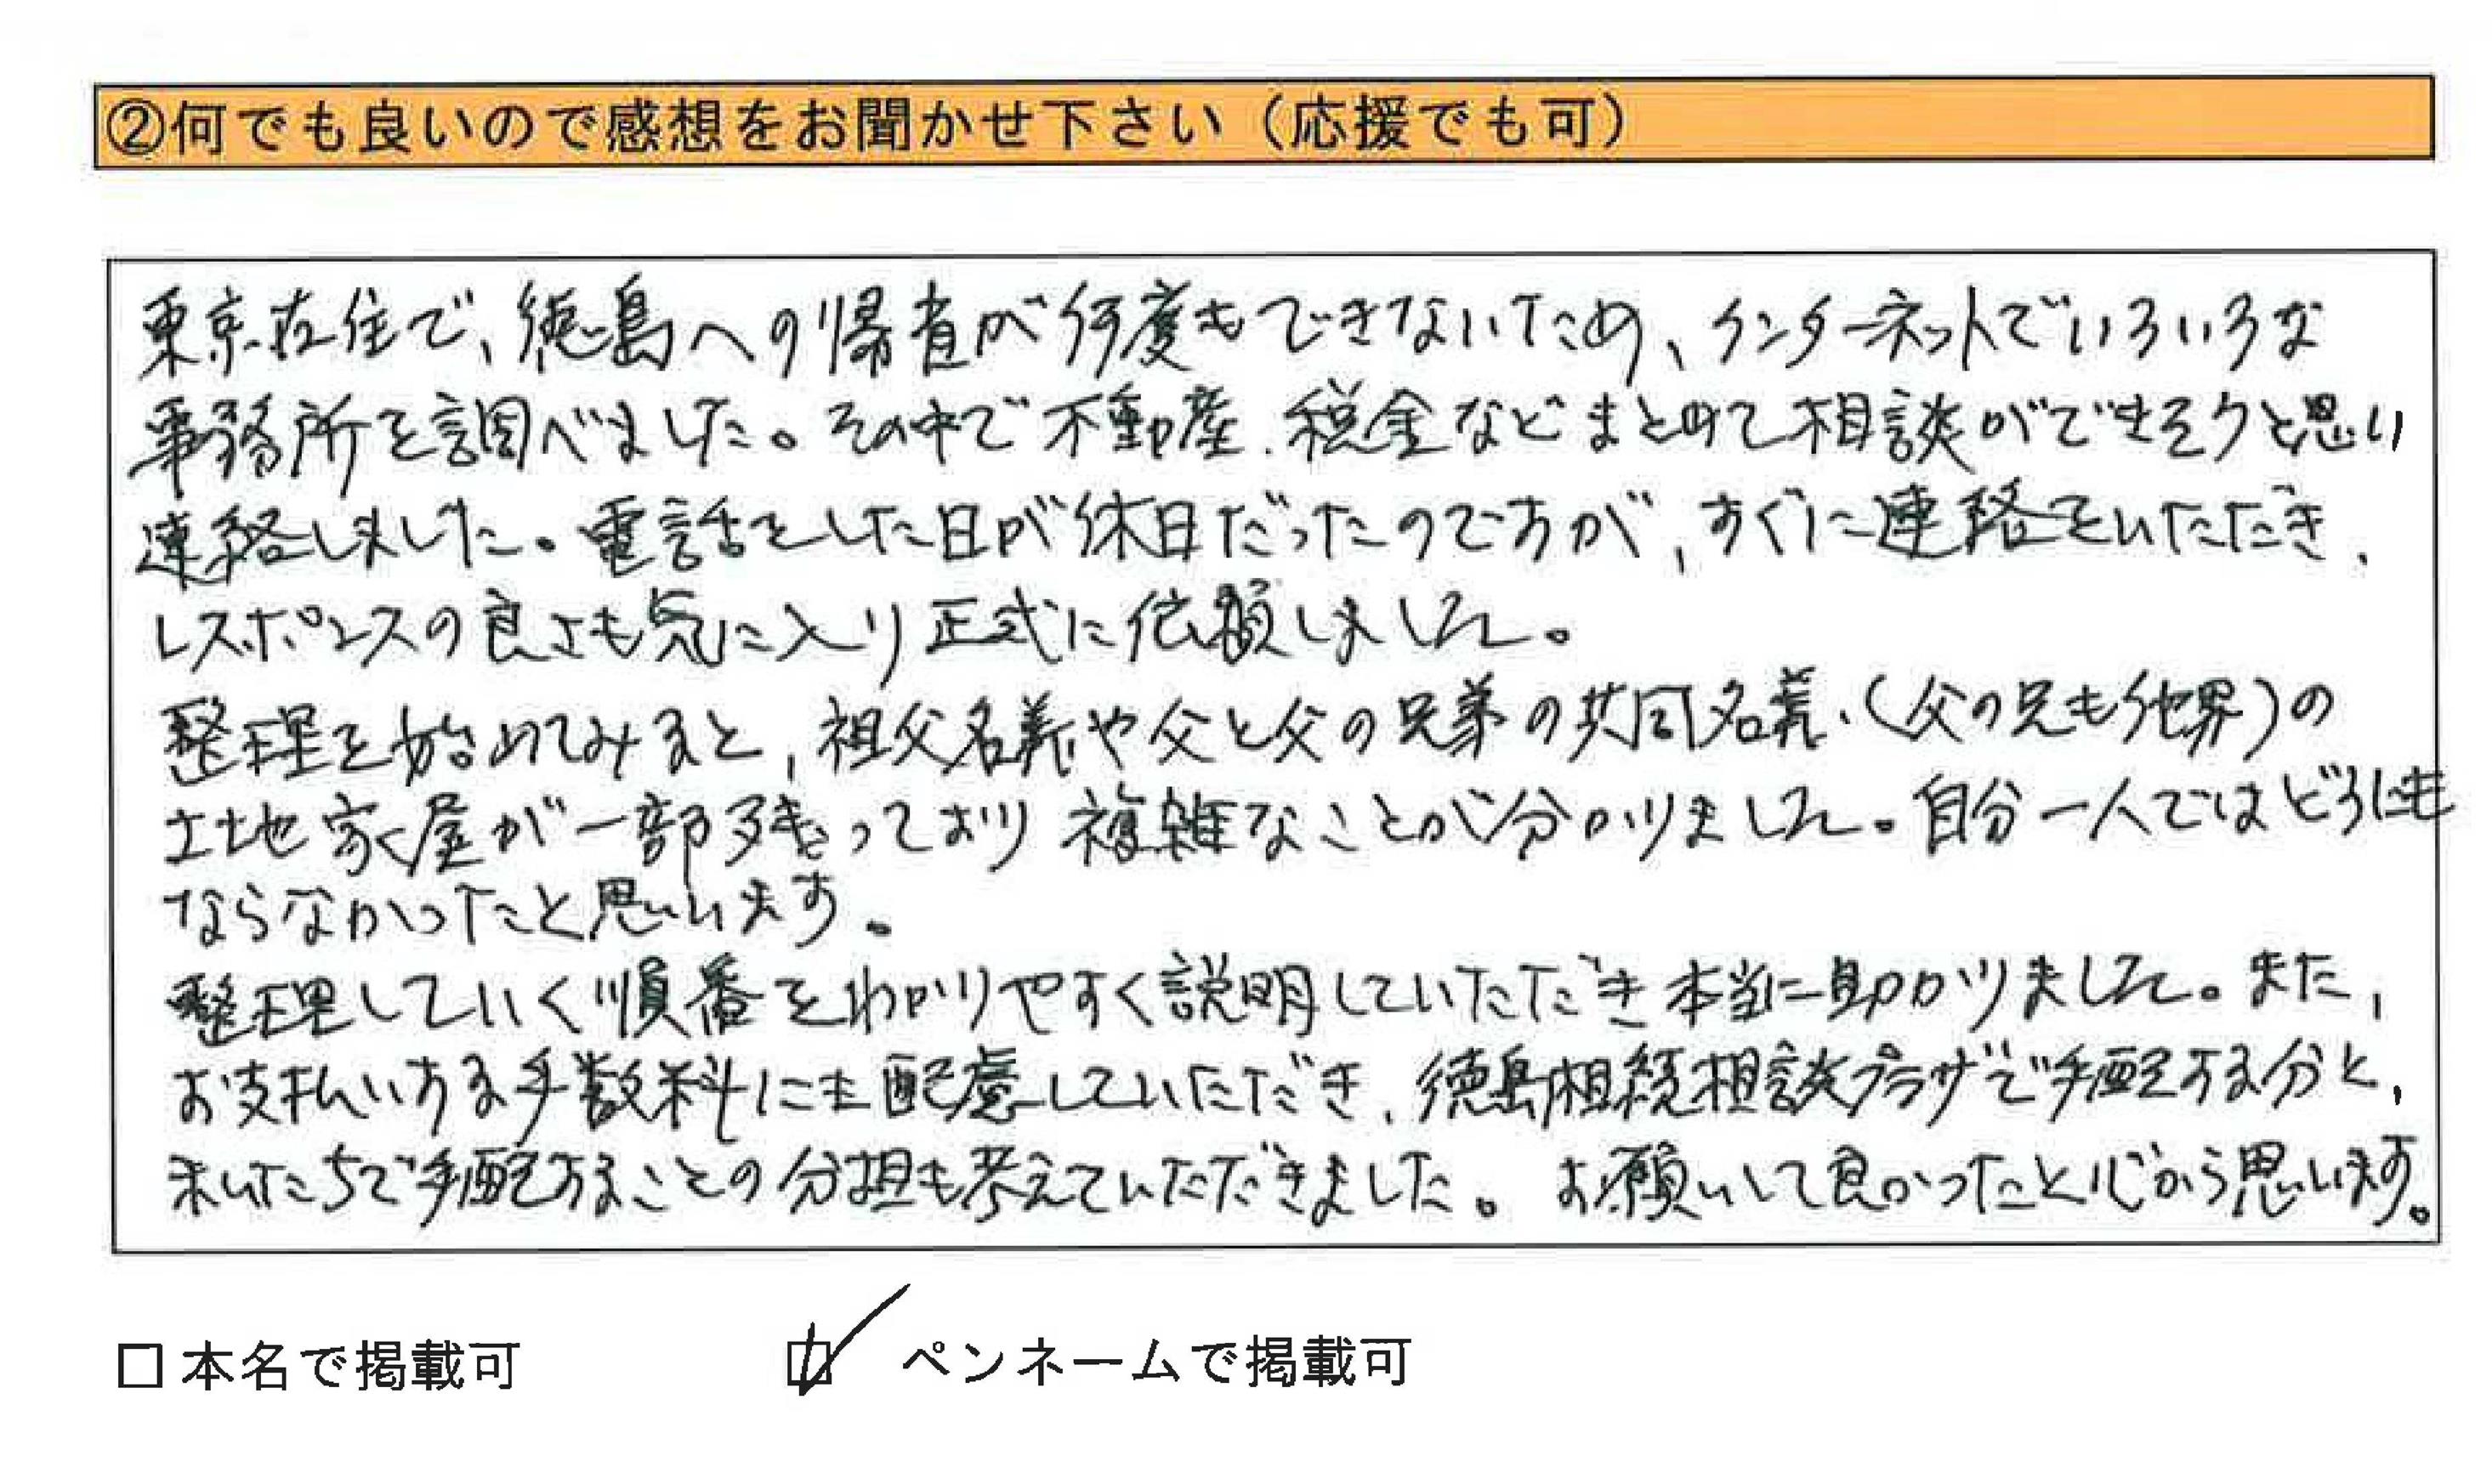 ②何でも良いので感想をお聞かせ下さい（応援でも可）
東京在住で、徳島への帰省が何度もできないため、インターネットでいろいろな
事務所を調べました。その中で不動産、税金などまとめて相談ができそうと思い
連絡しました。電話をした日が休日だったのですが、すぐに連絡をいただき、
レスポンスの良さも気に入り正式に依頼しました。
整理を始めてみると、祖父名義や父と父の兄弟の共同名義、（父の兄も他界）の
土地家屋が一部残っており複雑なことが分かりました。自分一人ではどうにも
ならなかったと思います。
整理していく順番をわかりやすく説明していただき本当に助かりました。また、
お支払いする手数料にも配慮していただき、徳島相続相談プラザで手配する分と、
私たちで手配することの分担も考えていただきました。お願いして良かったと心から思います。
□本名で掲載可
☑ペンネームで掲載可